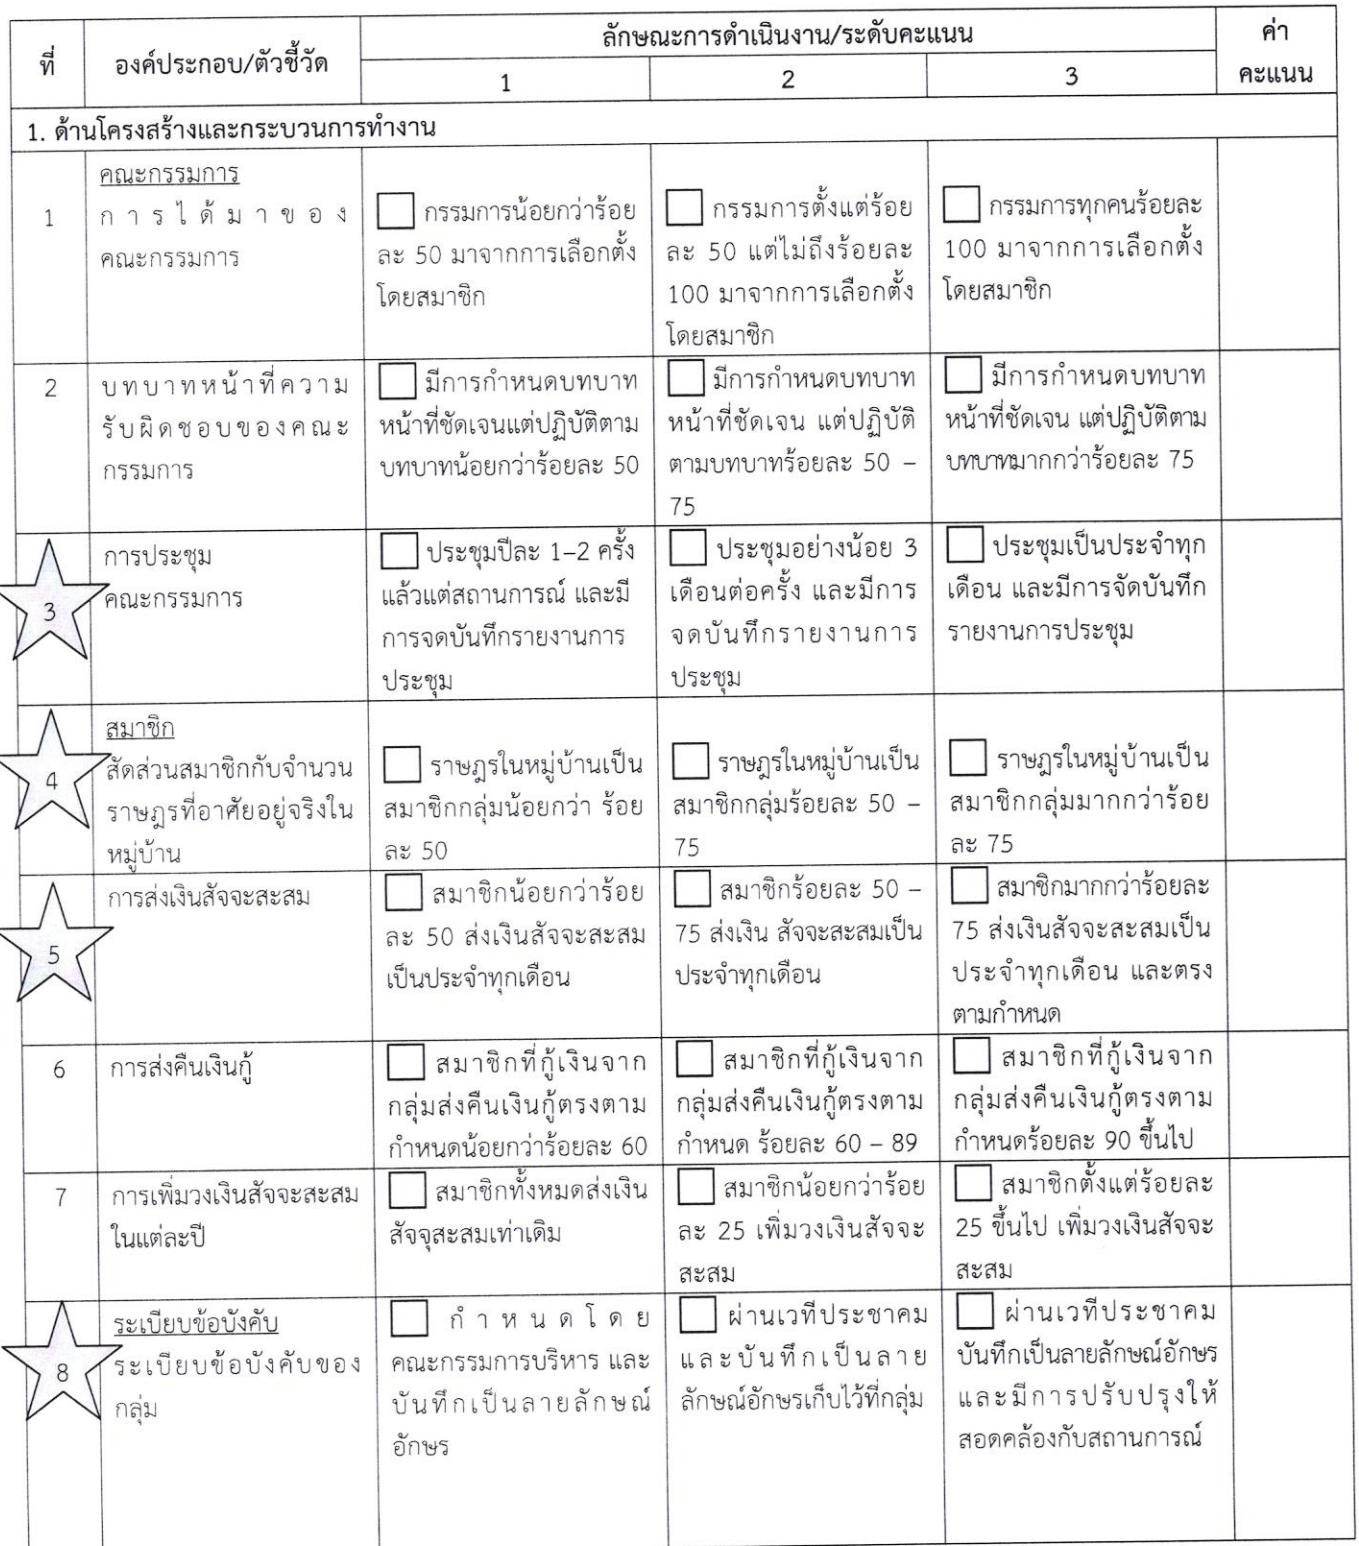 ที่
องค์ประกอบ/ตัวชี้วัด
ลักษณะการดำเนินงาน/ระดับคะแนน
ค่า
คะแนน
1
2
3
1. ด้านโครงสร้างและกระบวนการทำงาน
1
คณะกรรมการ
การได้มาของ
คณะกรรมการ
กรรมการน้อยกว่าร้อย
ละ 50 มาจากการเลือกตั้ง
โดยสมาชิก
กรรมการตั้งแต่ร้อย
ละ 50 แต่ไม่ถึงร้อยละ
100 มาจากการเลือกตั้ง
โดยสมาชิก
กรรมการทุกคนร้อยละ
100 มาจากการเลือกตั้ง
โดยสมาชิก
2
บทบาทหน้าที่ความ
รับผิดชอบของคณะ
กรรมการ
มีการกำหนดบทบาท
หน้าที่ชัดเจนแต่ปฏิบัติตาม
บทบาทน้อยกว่าร้อยละ 50
มีการกำหนดบทบาท
หน้าที่ชัดเจน แต่ปฏิบัติ
ตามบทบาทร้อยละ 50 –
75
มีการกำหนดบทบาท
หน้าที่ชัดเจน แต่ปฏิบัติตาม
บทบาทมากกว่าร้อยละ 75
3
การประชุม
คณะกรรมการ
ประชุมปีละ 1–2 ครั้ง
แล้วแต่สถานการณ์ และมี
การจดบันทึกรายงานการ
ประชุม
ประชุมอย่างน้อย 3
เดือนต่อครั้ง และมีการ
จดบันทึกรายงานการ
ประชุม
ประชุมเป็นประจำทุก
เดือน และมีการจัดบันทึก
รายงานการประชุม
4
สมาชิก
สัดส่วนสมาชิกกับจำนวน
ราษฎรที่อาศัยอยู่จริงใน
หมู่บ้าน
ราษฎรในหมู่บ้านเป็น
สมาชิกกลุ่มน้อยกว่า ร้อย
ละ 50
ราษฎรในหมู่บ้านเป็น
สมาชิกกลุ่มร้อยละ 50 –
75
ราษฎรในหมู่บ้านเป็น
สมาชิกกลุ่มมากกว่าร้อย
ละ 75
5
การส่งเงินสัจจะสะสม
สมาชิกน้อยกว่าร้อย
ละ 50 ส่งเงินสัจจะสะสม
เป็นประจำทุกเดือน
สมาชิกร้อยละ 50 –
75 ส่งเงิน สัจจะสะสมเป็น
ประจำทุกเดือน
สมาชิกมากกว่าร้อยละ
75 ส่งเงินสัจจะสะสมเป็น
ประจำทุกเดือน และตรง
ตามกำหนด
6
การส่งคืนเงินกู้
สมาชิกที่กู้เงินจาก
กลุ่มส่งคืนเงินกู้ตรงตาม
กำหนดน้อยกว่าร้อยละ 60
สมาชิกที่กู้เงินจาก
กลุ่มส่งคืนเงินกู้ตรงตาม
กำหนด ร้อยละ 60 – 89
สมาชิกที่กู้เงินจาก
กลุ่มส่งคืนเงินกู้ตรงตาม
กำหนดร้อยละ 90 ขึ้นไป
7
การเพิ่มวงเงินสัจจะสะสม
ในแต่ละปี
สมาชิกทั้งหมดส่งเงิน
สัจจุสะสมเท่าเดิม
สมาชิกน้อยกว่าร้อย
ละ 25 เพิ่มวงเงินสัจจะ
สะสม
สมาชิกตั้งแต่ร้อยละ
25 ขึ้นไป เพิ่มวงเงินสัจจะ
สะสม
8
ระเบียบข้อบังคับ
ระเบียบข้อบังคับของ
กลุ่ม
กำหนดโดย
คณะกรรมการบริหาร และ
บันทึกเป็นลายลักษณ์
อักษร
ผ่านเวทีประชาคม
และบันทึกเป็นลาย
ลักษณ์อักษรเก็บไว้ที่กลุ่ม
ผ่านเวทีประชาคม
บันทึกเป็นลายลักษณ์อักษร
และมีการปรับปรุงให้
สอดคล้องกับสถานการณ์